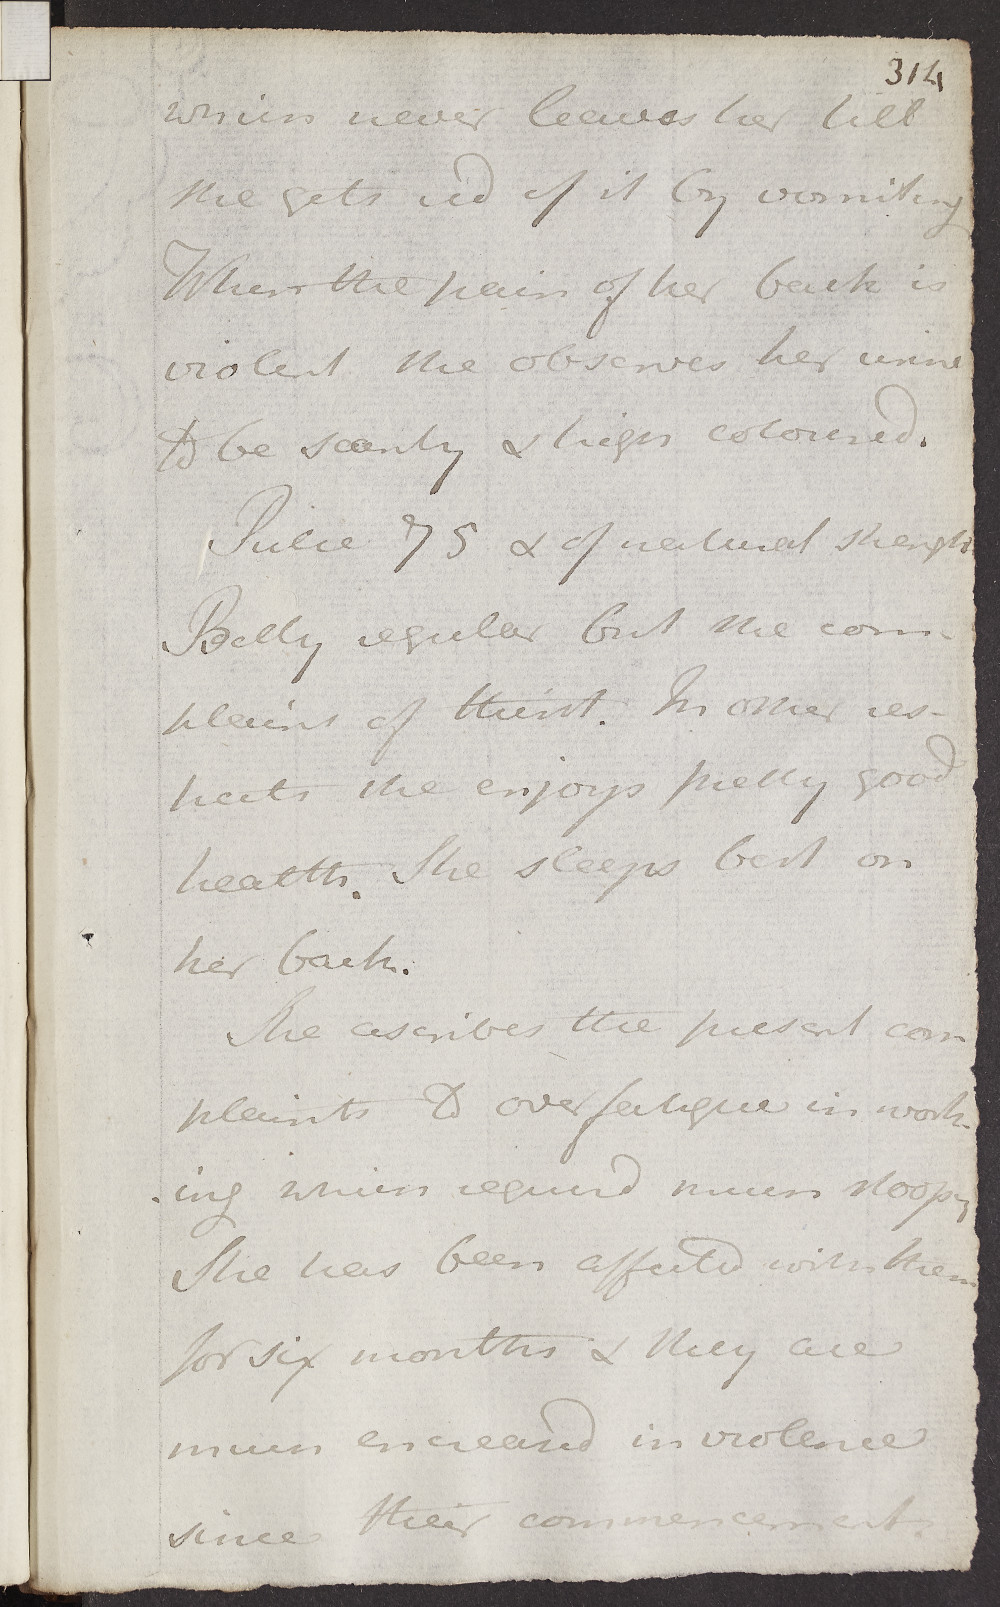 314
which never leaves her till
she gets rid of it by vomiting
When the pain of her back is
violent she observes her urine
to be scanty & high coloured.
Pulse 75 & of natural strength
Belly regular but she com-
plains of thirst. In other res-
pects she enjoys pretty good
health. She sleeps best on
her back.
She ascribes the present com
plaints to over fatigue in work-
ing which requird much stoopg
She has been affected with them
for six months & they are
much encreasd in violence
since their commencement.